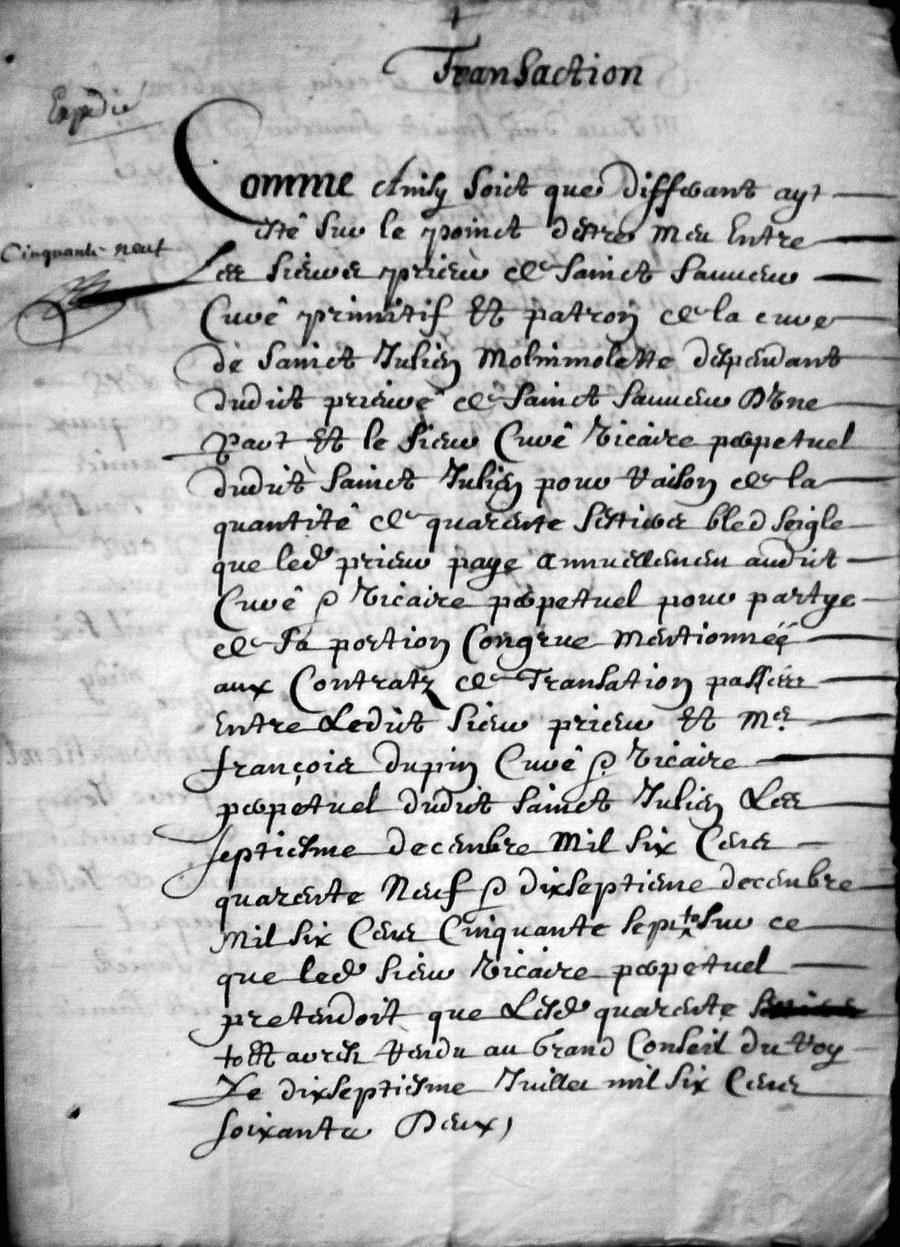 Transaction
Expedie
Comme Ainsy soict que differant ayt
esté sur le poinct destre meu Entre
Cinquante neuf
Les sieurs prieur de Sainct Sauveur
Curé primitif Et patron de la cure
de Sainct Julien Molinmolette despendant
dudict prieuré de Sainct Sauveur D'Une
Part Et le sieur Curé Vicaire perpetuel
dudict Sainct Julien pour Raison de la
quantité de quarente sestiers bled seigle
que led prieur paye Annuellemen audict
Curé & Vicaire perpetuel pour partye
de sa portion Congrue Mentionnéé
aux Contratz de Transation passées
Entre Ledict sieur prieur Et Me
françois dupin Curé & Vicaire
perpetuel dudict Sainct Julien Les
septiesme decembre Mil six Cens
quarente Neuf & dixseptieme decembre
Mil six Cens Cinquante sept sur ce
que led sieur Vicaire perpetuel
pretendoit que Lesd quarente
Arrest Rendu au Grand Conseil du Roy
Le dixseptiesme Juillet mil six Cens
soixante Deux,